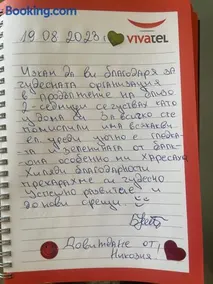 Booking.com
19.08.2023г.
vivatel
Искам да ви благодаря за
чудесната организация
в продължение на близо
2 седмици се чувствах като
у дома си. За всичко сте
помислили има всякакви
ел. уреди, уютно е гледка-
та зеленината от бал-
кона особенно ми хареса.
Хиляди благодарности
прекарахме си чудесно
Успешно развитие и
до нови срещи
Довиждане от,
Николия.